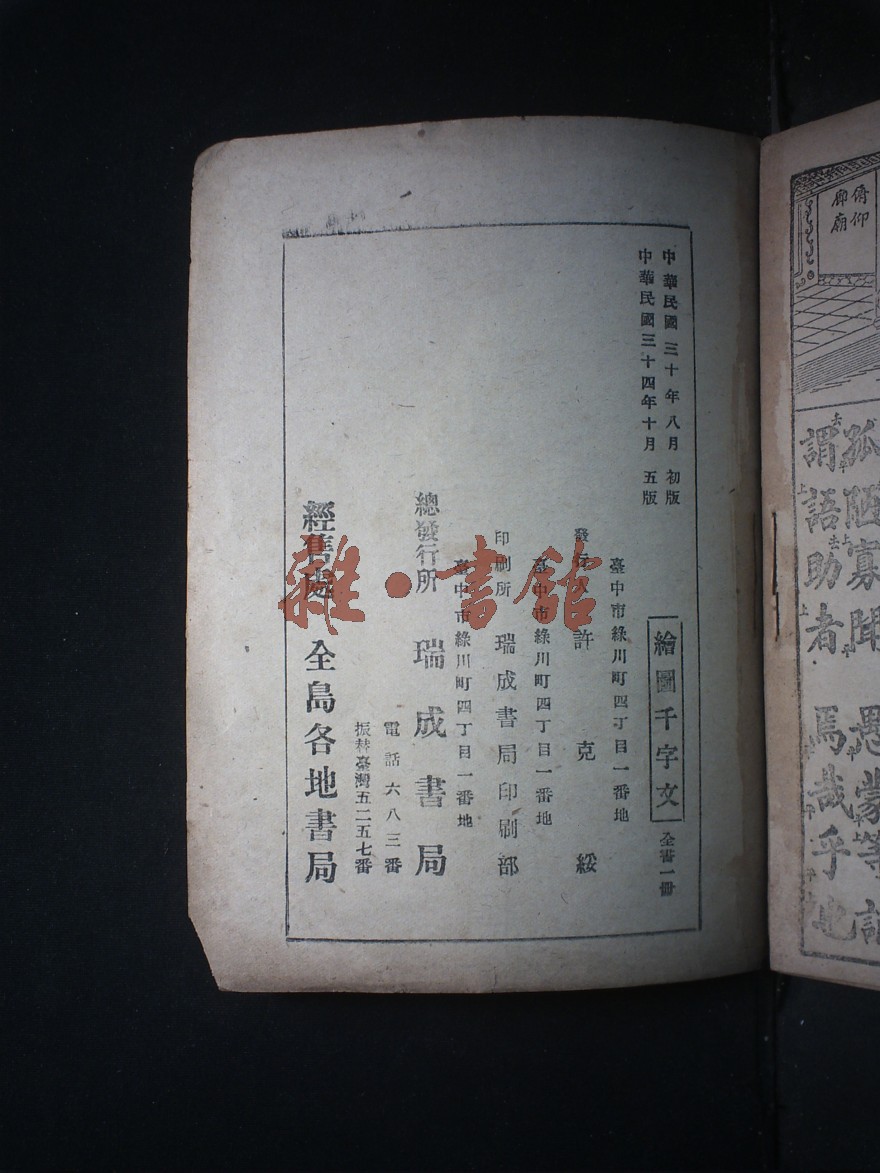 俯仰
廊廟
孤陋寡聞 愚蒙等誚
謂語助者 焉哉乎也
中華民國三十年八月 初版
中華民國三十四年十月 五版
繪圖千字文 全書一冊
臺中市綠川町四丁目一番地
發行人 許克綏
臺中市綠川町四丁目一番地
印刷所 瑞成書局印刷部
臺中市綠川町四丁目一番地
總發行所 瑞成書局
電話六八三番
振替臺灣五二五七番
經售處 全島各地書局
雜·書館